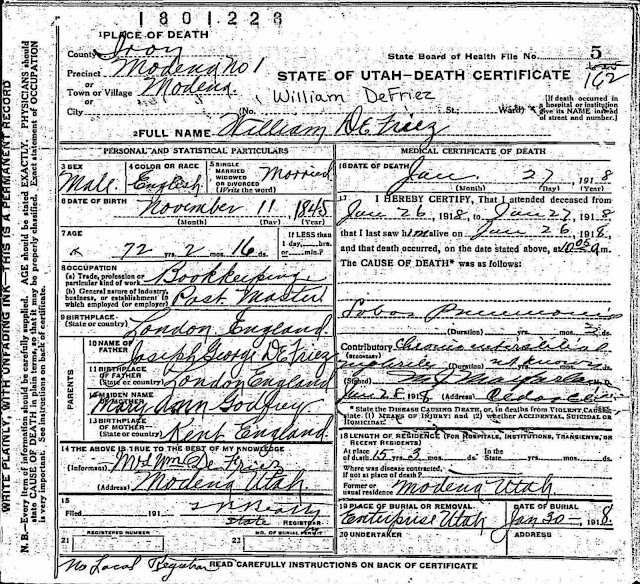 1801223
1 PLACE OF DEATH
County Iron
State Board of Health File No. 5
Precinct Modena no 1
162
STATE OF UTAH—DEATH CERTIFICATE
or
Town or Village Modena
William DeFriez
City (No. St.; Ward)
[If death occurred in a hospital or institution give its NAME instead of street and number.]
2 FULL NAME William DeFriez
PERSONAL AND STATISTICAL PARTICULARS
3 SEX Male
4 COLOR OR RACE English
5 SINGLE MARRIED WIDOWED OR DIVORCED (Write the word) Married
6 DATE OF BIRTH November 11, 1845
(Month) (Day) (Year)
7 AGE 72 yrs. 2 mos. 16 ds.
If LESS than 1 day, hrs. or min.?
8 OCCUPATION
(a) Trade, profession or particular kind of work Bookkeeping
(b) General nature of industry, business, or establishment in which employed (or employer) Post Master
9 BIRTHPLACE (State or country) London England
PARENTS
10 NAME OF FATHER Joseph George DeFriez
11 BIRTHPLACE OF FATHER (State or country) London England
12 MAIDEN NAME OF MOTHER Mary Ann Godfrey
13 BIRTHPLACE OF MOTHER (State or country) Kent England
14 THE ABOVE IS TRUE TO THE BEST OF MY KNOWLEDGE
(Informant) Mrs Wm DeFriez
(Address) Modena Utah
15
Filed 191
State REGISTRAR
21 REGISTERED NUMBER
22 NO. OF BURIAL PERMIT
MEDICAL CERTIFICATE OF DEATH
16 DATE OF DEATH Jan. 27, 1918
(Month) (Day) (Year)
17 I HEREBY CERTIFY, That I attended deceased
from Jan 26 1918 to Jan 27, 1918
that I last saw him alive on Jan 26, 1918
and that death occurred, on the date stated above, at m.
The CAUSE OF DEATH* was as follows:
Lobar Pneumonia
(Duration) yrs. mos. 3 ds.
Contributory Chronic interstitial
(SECONDARY)
(Duration) yrs. mos. ds.
(Signed)
Jan 28 1918 (Address)
* State the DISEASE CAUSING DEATH, or, in deaths from VIOLENT CAUSES, state (1) MEANS OF INJURY; and (2) whether ACCIDENTAL, SUICIDAL or HOMICIDAL
18 LENGTH OF RESIDENCE (FOR HOSPITALS, INSTITUTIONS, TRANSIENTS, OR RECENT RESIDENTS)
At place of death 15 yrs. 3 mos. ds. In the State yrs. mos. ds.
Where was disease contracted, if not at place of death?
Former or usual residence Modena Utah
19 PLACE OF BURIAL OR REMOVAL Enterprise Utah
DATE OF BURIAL Jan 30 1918
20 UNDERTAKER
ADDRESS
No Local Registrar
READ CAREFULLY INSTRUCTIONS ON BACK OF CERTIFICATE
WRITE PLAINLY, WITH UNFADING INK—THIS IS A PERMANENT RECORD
N. B.—Every item of information should be carefully supplied. AGE should be stated EXACTLY. PHYSICIANS should
state CAUSE OF DEATH in plain terms, so that it may be properly classified. Exact statement of OCCUPATION
is very important. See instructions on back of certificate.